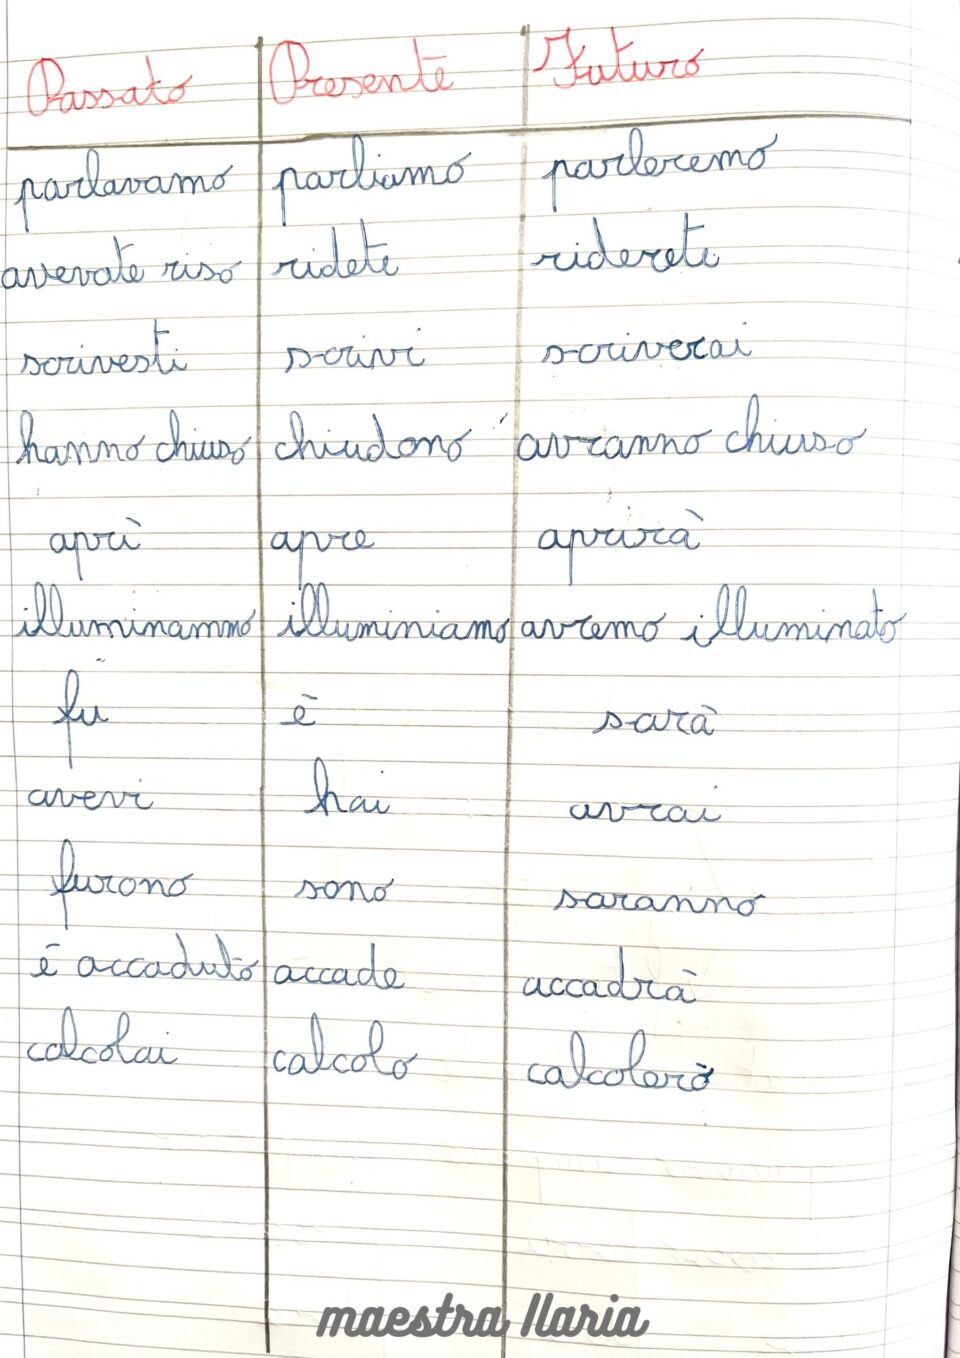 Passato Presente Futuro
parlavamo parliamo parleremo
avevate riso ridete riderete
scrivesti scrivi scriverai
hanno chiuso chiudono avranno chiuso
aprì apre aprirà
illuminammo illuminiamo avremo illuminato
fu è sarà
avevi hai avrai
furono sono saranno
è accaduto accade accadrà
calcolai calcolo calcolerò
maestra Ilaria